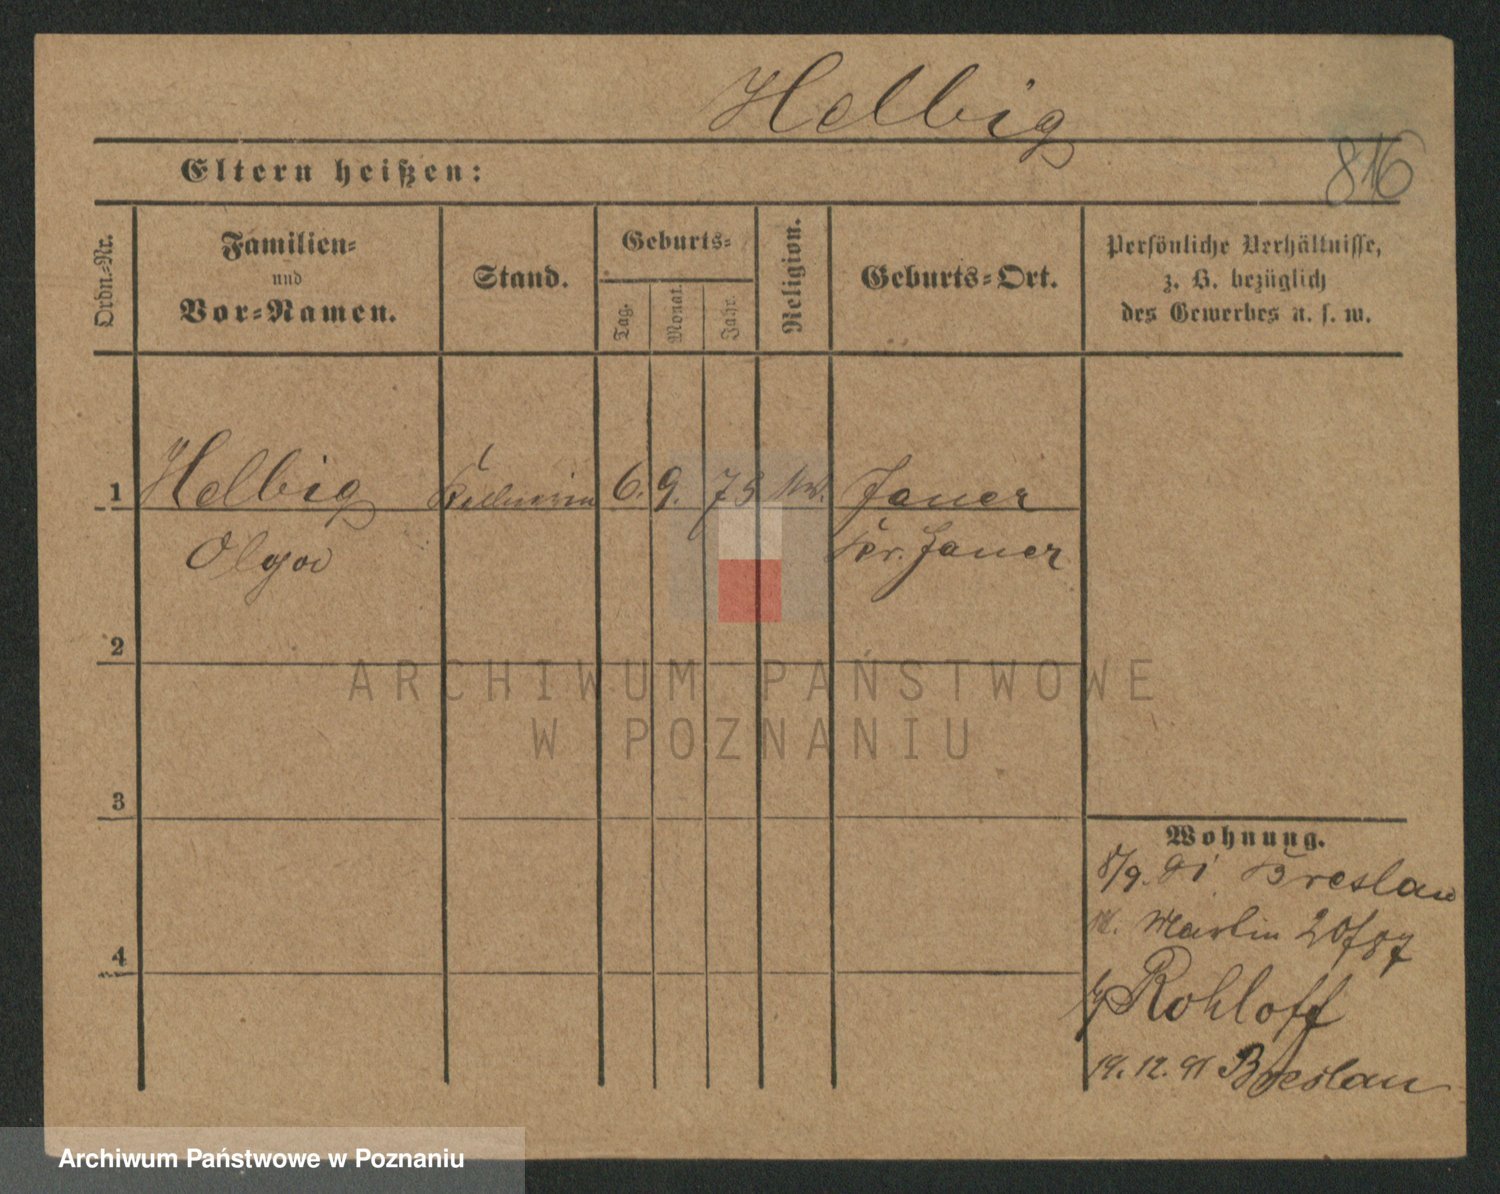 Helbig
816
Eltern heißen:
Ordn.-Nr.
Familien-
und
Vor-Namen.
Stand.
Geburts-
Tag.
Monat.
Jahr.
Religion.
Geburts-Ort.
Persönliche Verhältnisse,
z. B. bezüglich
des Gewerbes u. s. w.
1 Helbig Kellnerin 6. 9. 73 Jauer
Olga Kr. Jauer
2
ARCHIWUM PAŃSTWOWE
W POZNANIU
3
4
Wohnung.
8/9. 91 Breslau
Martin 20
Rohloff
19. 12. 91 Breslau
Archiwum Państwowe w Poznaniu